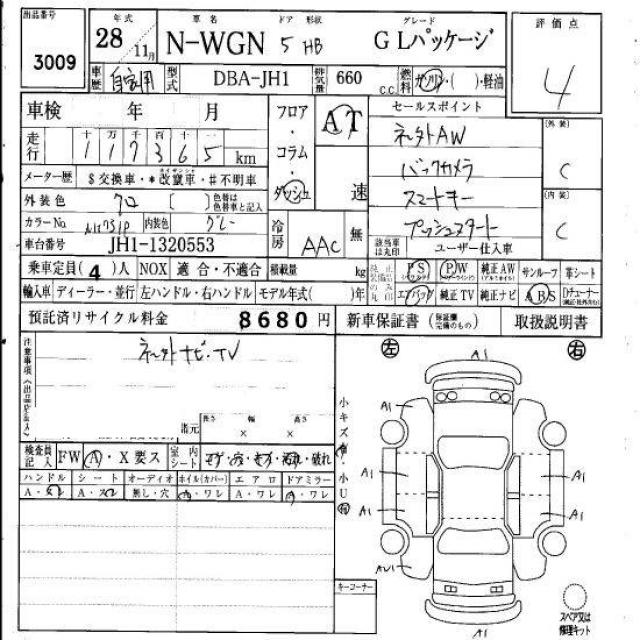 出品番号 年式 車名 ドア 形状 グレード 評価点
3009 28 11月 N-WGN 5 HB G Lパッケージ 4
車歴 自家用 型式 DBA-JH1 排気量 660 c.c. 燃料 ガソリン・( )・軽油
車検 年 月 フロア・コラム・ダッシュ AT 速 セールスポイント
走行 十 万 千 百 十 一
117365 km
社外AW
バックカメラ
スマートキー
プッシュスタート
(外装) C
(内装) C
メーター歴 $交換車・*改竄車・#不明車
外装色 クロ [ ] 色替は色替車と記入
カラーNo. 内装色 グレー 冷房 AAC 無
該当車は丸印 ユーザー仕入車
車台番号 JH1-1320553
乗車定員(4)人 NOX 適合・不適合 積載量 kg PS PW 純正AW サンルーフ 革シート
輸入車 ディーラー・並行 左ハンドル・右ハンドル モデル年式( )年 エアバッグ 純正TV 純正ナビ ABS Dチューナー
預託済リサイクル料金 8680円 新車保証書 (保証欄完備のもの) 取扱説明書
注意事項
社外ナビ・TV
諸元 長さ × 幅 × 高さ
左 右
検査員記入 FW A・X要ス 室内シート コゲ・穴・キズ・汚れ・破れ
ハンドル シート オーディオ ホイル(カバー) エアロ ドアミラー
A・スレ A・スレ 無し・穴 A・ワレ A・ワレ A・ワレ
小キズ有・小U有
A1
A1
A1
A1
A1
A1
A1
AU1
A1
キーコーナー
スペア又は修理キット